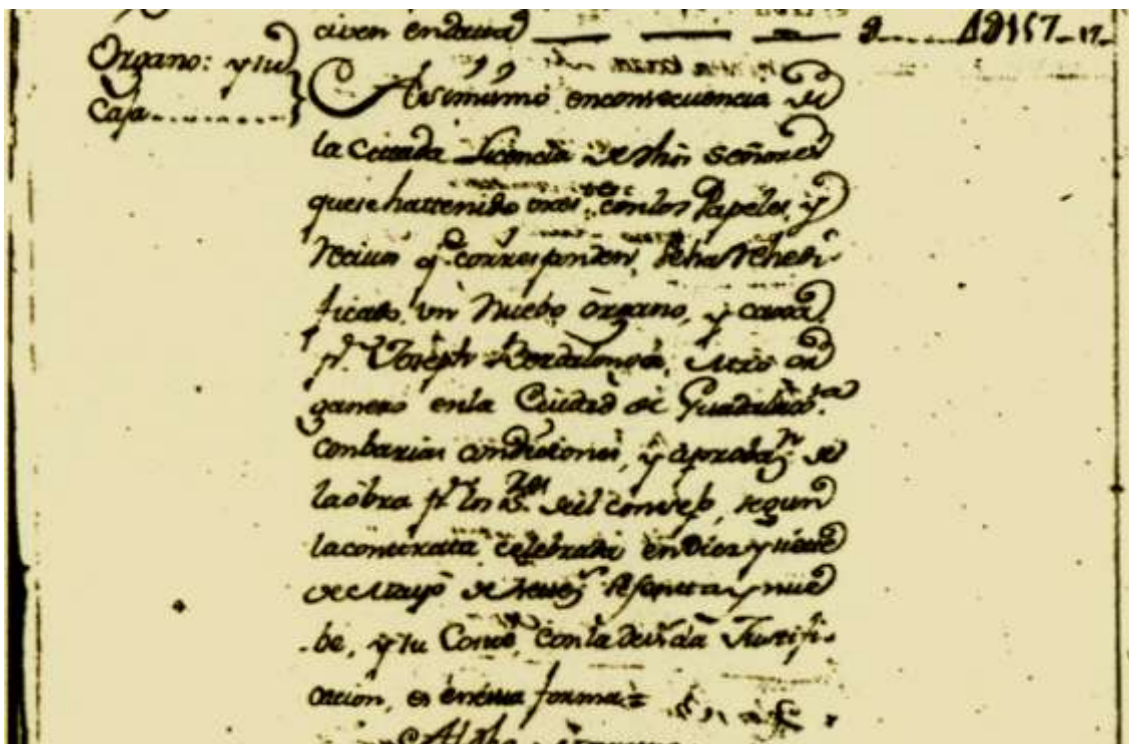 civen en data
Organo: y su
Caja
Asimismo enconsecuencia de
la Citada Licencia de dhos Señores
quesehattenido conlos Papeles, y
Recivos q.e corresponden, seha Rehedi-
ficado, un Nuebo organo, y caxa
p.r Joseph Mro or
ganero enla Ciudad de Guadalax.a
conbarias condiciones, y aprobaz.n de
laobra p.r los S.res del consejo, segun
lacontrata celebrada en Diez y siete
de Mayo de settez.s sesenta y nue
be, y su Coste, conla devida Justifi-
cacion, es enesta forma=